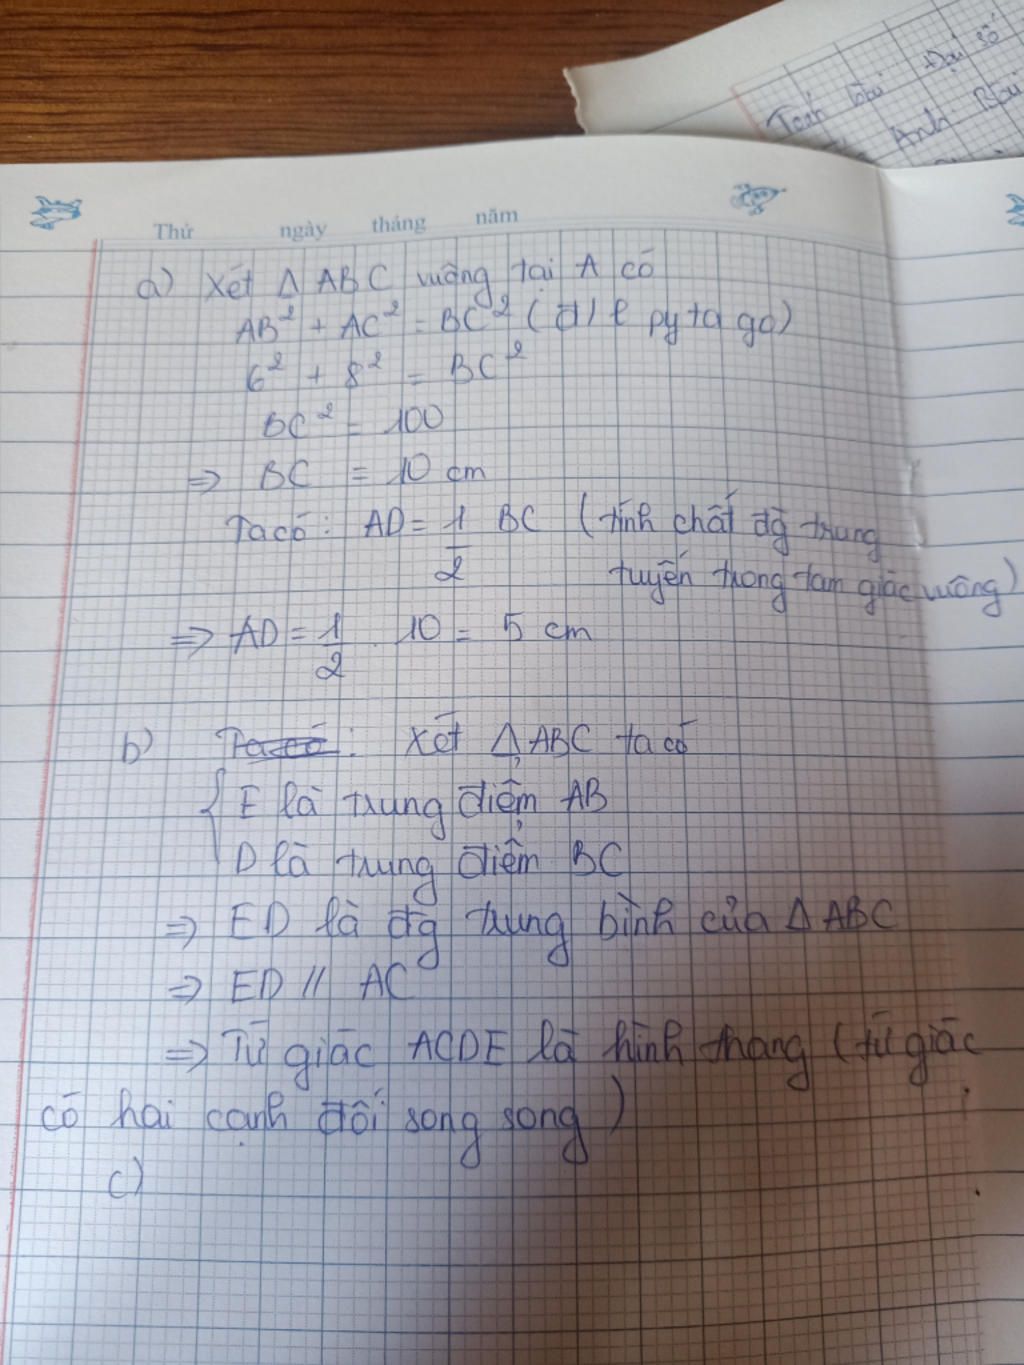 Toán bài Đại số
Anh Bài
Thứ ngày tháng năm
a) Xét Δ ABC vuông tại A có
AB² + AC² = BC² (đ/l pytago)
6² + 8² = BC²
BC² = 100
=> BC = 10 cm
Ta có: AD = 1/2 BC (tính chất đg trung
tuyến trong tam giác vuông)
=> AD = 1/2 . 10 = 5 cm
b) Ta có: Xét Δ ABC ta có
{ E là trung điểm AB
D là trung điểm BC
=> ED là đg trung bình của Δ ABC
=> ED // AC
=> Tứ giác ACDE là hình thang (tứ giác
có hai cạnh đối song song)
c)